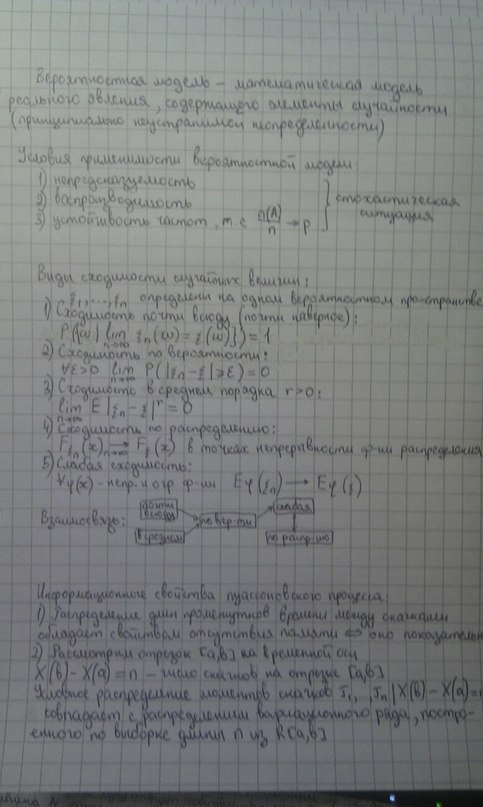 Вероятностная модель – математическая модель
реального явления, содержащего элементы случайности
(принципиально неустранимой неопределенности)
Условия применимости вероятностной модели:
1) непредсказуемость
2) воспроизводимость
3) устойчивость частот, т.е. n(A)/n → p
} стохастическая
ситуация
Виды сходимости случайных величин:
ξ₁,...,ξₙ определены на одном вероятностном про-странстве
1) Сходимость почти всюду (почти наверное):
P({ω| lim n→∞ ξₙ(ω) = ξ(ω)}) = 1
2) Сходимость по вероятности:
∀ε>0 lim n→∞ P(|ξₙ-ξ|≥ε) = 0
3) Сходимость в среднем порядка r>0:
lim n→∞ E|ξₙ-ξ|ʳ = 0
4) Сходимость по распределению:
F_ξₙ(x) n→∞ → F_ξ(x) в точках непрерывности ф-ии распределения
5) Слабая сходимость:
∀φ(x) - непр. и огр. ф-ии Eφ(ξₙ) → Eφ(ξ)
Взаимосвязь:
почти
всюду
в среднем
по вер-ти
слабая
по распр-ию
Информационные свойства пуассоновского процесса:
1) Распределение длин промежутков времени между скачками
обладает свойством отсутствия памяти ⇔ оно показательн
2) Рассмотрим отрезок [a,b] на временной оси
X(b) - X(a) = n – число скачков на отрезке [a,b]
Условное распределение моментов скачков τ₁,...,τₙ | X(b) - X(a) = n
совпадает с распределением вариационного ряда, постро-
енного по выборке длины n из R[a,b]